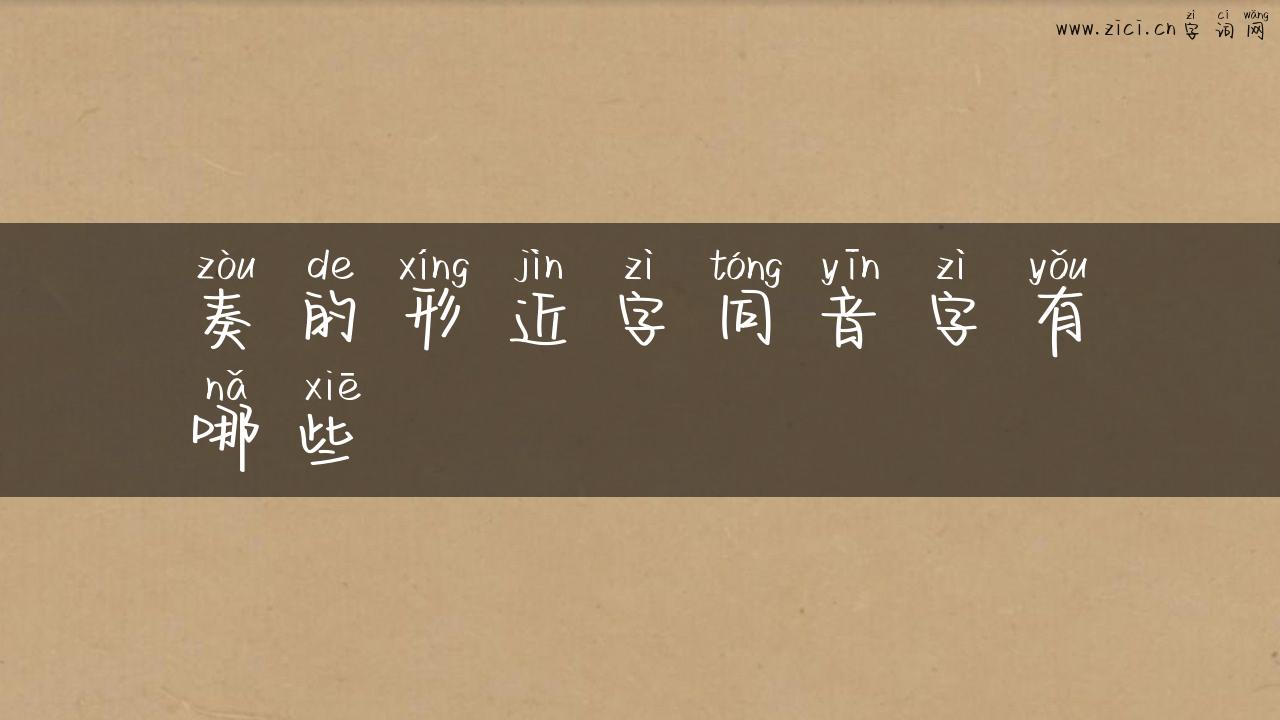 zì cí wǎng
www.zici.cn 字词网
zòu de xíng jìn zì tóng yīn zì yǒu
奏的形近字同音字有
nǎ xiē
哪些